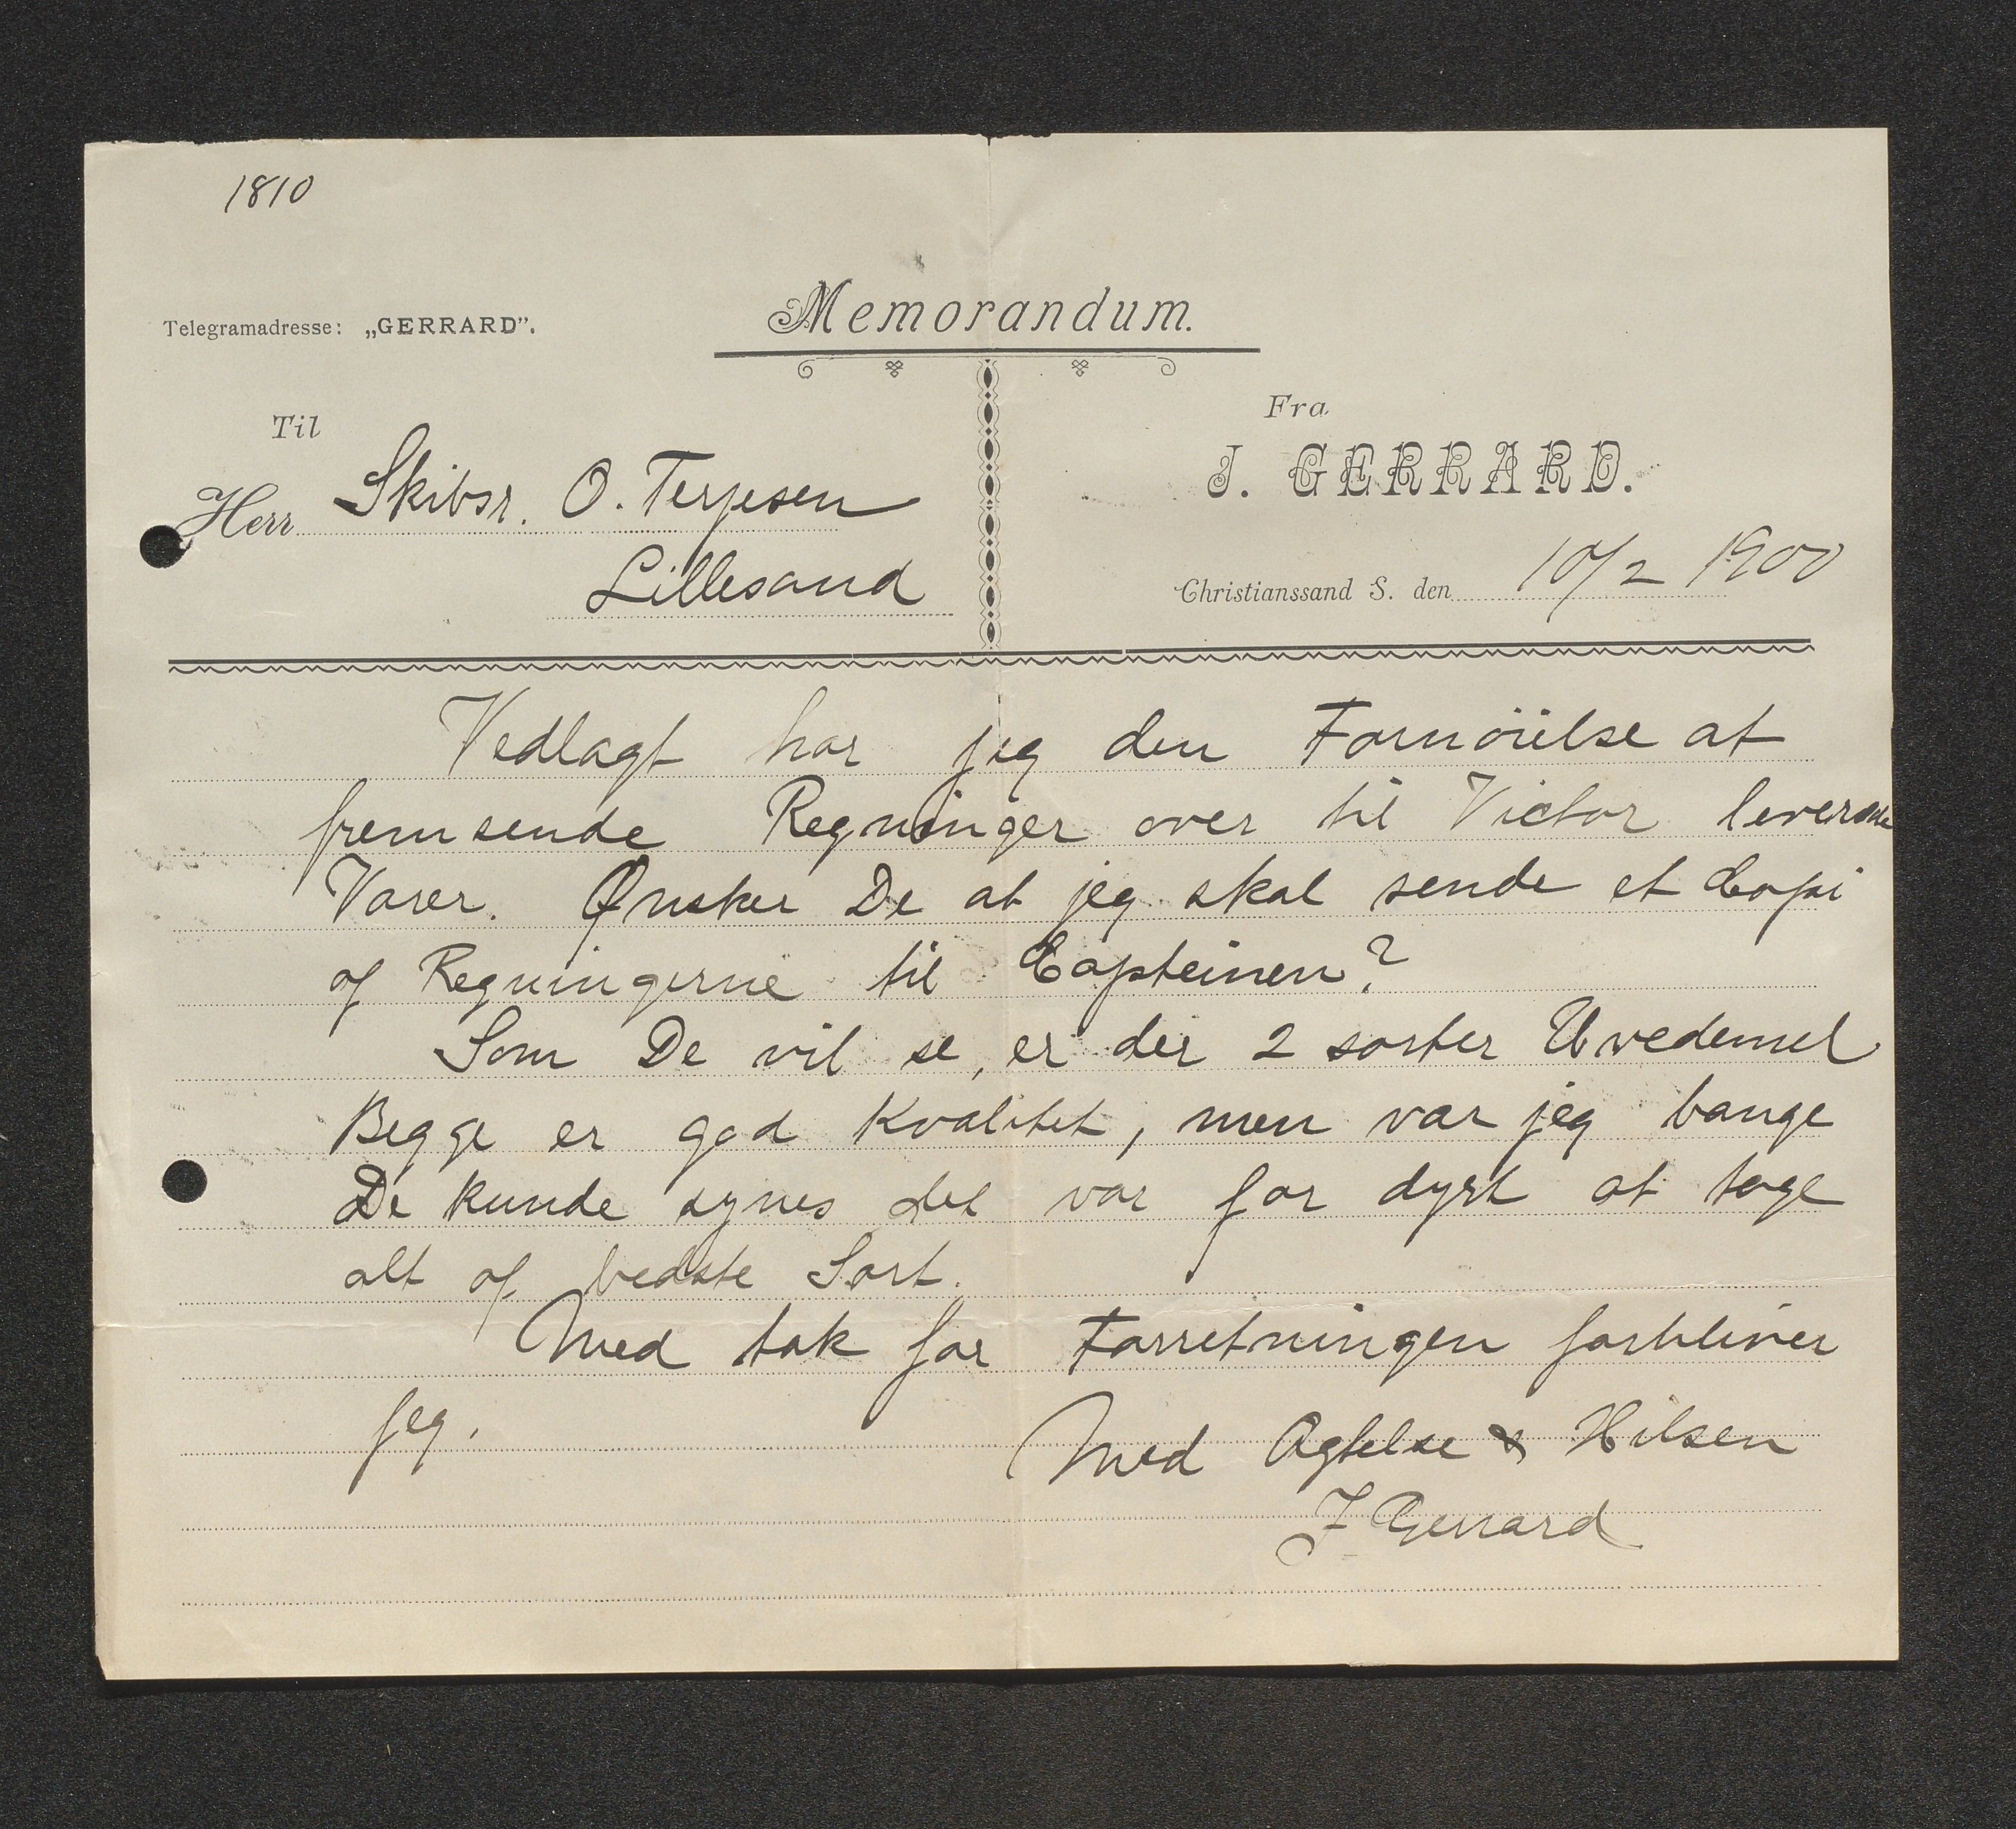 1810
Telegramadresse: „GERRARD".
Memorandum.
Til
Herr Skibsr. O. Terjesen
Lillesand
Fra
J. GERRARD.
Christianssand S. den 10/2 1900
Vedlagt har jeg den Fornöielse at
fremsende Regninger over til Victor leverede
Varer. Ønsker De at jeg skal sende et Copi
af Regningerne til Capteinen?
Som De vil se, er der 2 sorter Hvedemel
Begge er god Kvalitet, men var jeg bange
De kunde synes det var for dyrt at tage
alt af bedste Sort.
Med tak for Forretningen forbliver
jeg.
Med Agtelse & Hilsen
J Gerrard